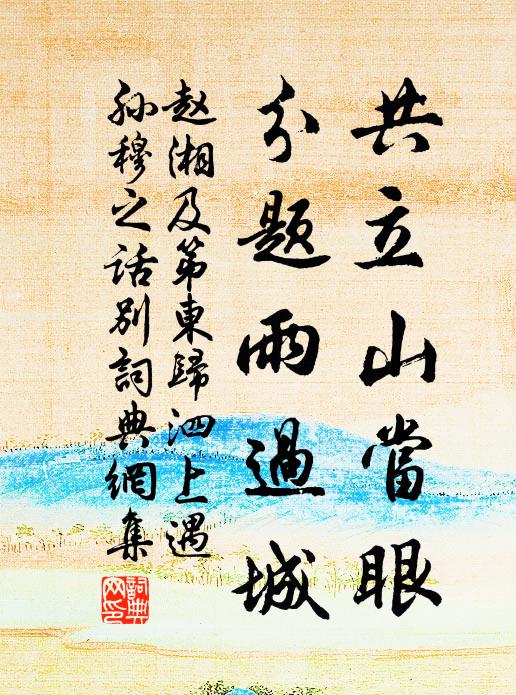 共立山當眼
分題雨過城
赵湘及第東歸泗上遇
孙穆之话别詞典網集
詞典网印